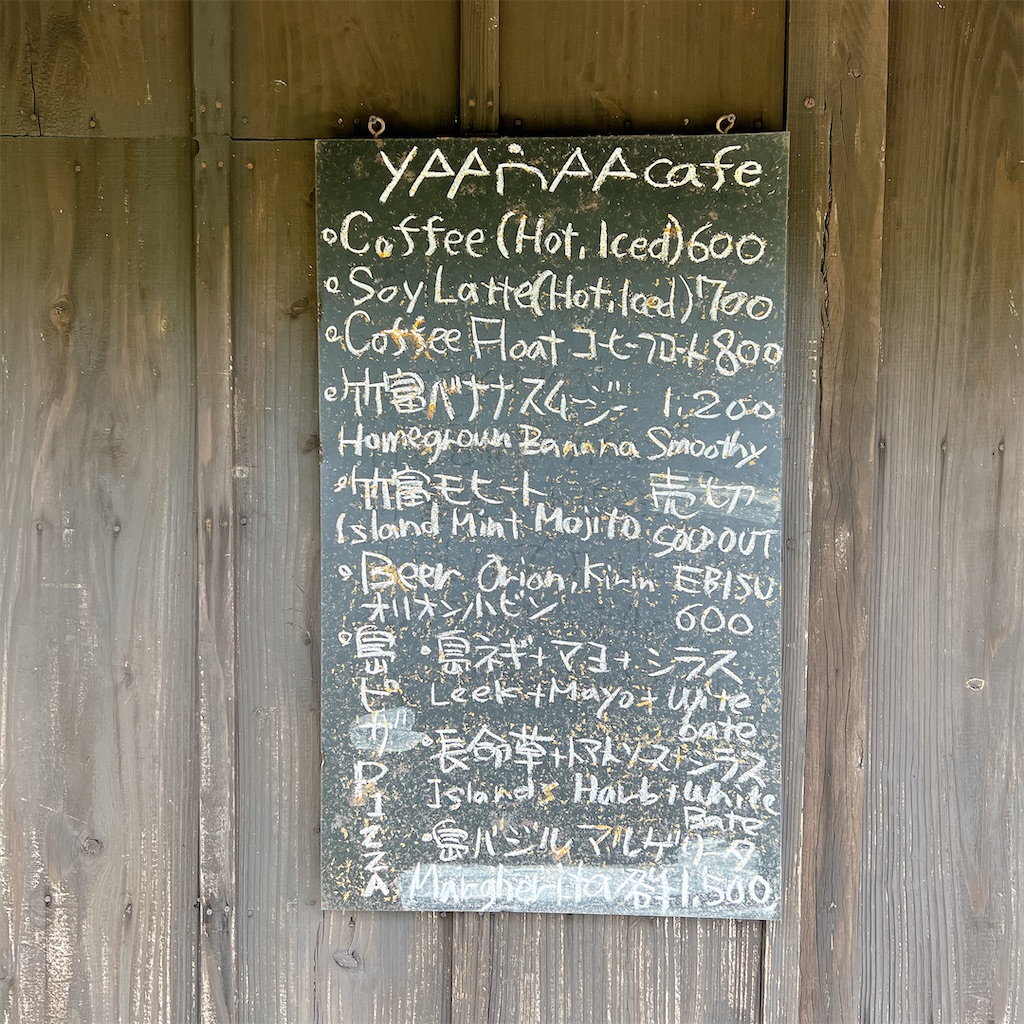 YAAṅAA cafe
Coffee (Hot, Iced) 600
Soy Latte (Hot, Iced) 700
Coffee Float コーヒーフロート 800
竹富バナナスムージー 1,200
Homegroun Banana Smoothy
竹富モヒート 売切
Island Mint Mojito SOLD OUT
Beer Orion, Kirin EBISU
オリオン小ビン 600
島ピザ PIZZA
・島ネギ+マヨ+シラス
Leek+Mayo+White
bate
・長命草+トマトソース+シラス
Islands Harb+White
Bate
・島バジルマルゲリータ
Margherita 各¥1,500